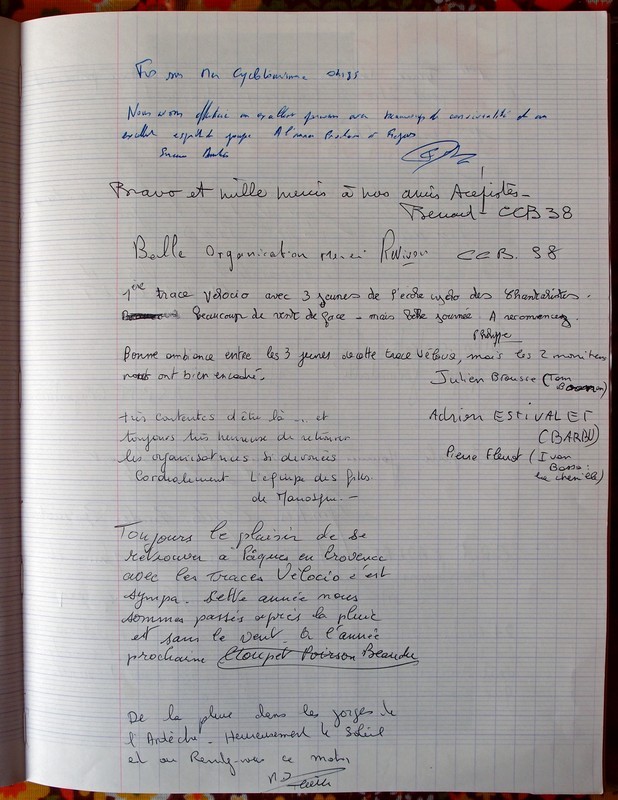 sur Cyclotourisme
Nous avons effectué un excellent parcours avec beaucoup de convivialité et un
excellent esprit de groupe. A l'année Prochaine à
Bravo et mille mercis à nos amis Acépistes -
Benoit - CCB 38
Belle Organisation merci CCB. 38
1ère trace Vélocio avec 3 jeunes de l'école cyclo des
Beaucoup de vent de face - mais belle journée A recommencer
Philippe
Bonne ambiance entre les 3 jeunes de cette trace Vélocio, mais les 2 moniteurs
nous ont bien encadré.
Julien Brousse (Tom
Adrien ESTIVALET
(BARBU)
Pierre (Ivan
Basso:
la chenille)
très contentes d'être là ... et
toujours très heureuse de retrouver
les organisatrices si dévouées
Cordialement L'équipe des filles
de Manosque. -
Toujours le plaisir de se
retrouver à Pâques en Provence
avec les Traces Vélocio c'est
sympa. Cette année nous
sommes passés après la pluie
et sans le vent. A l'année
prochaine Poirson
De la pluie dans les gorges de
l'Ardèche. Heureusement le Soleil
est au Rendez-vous ce matin